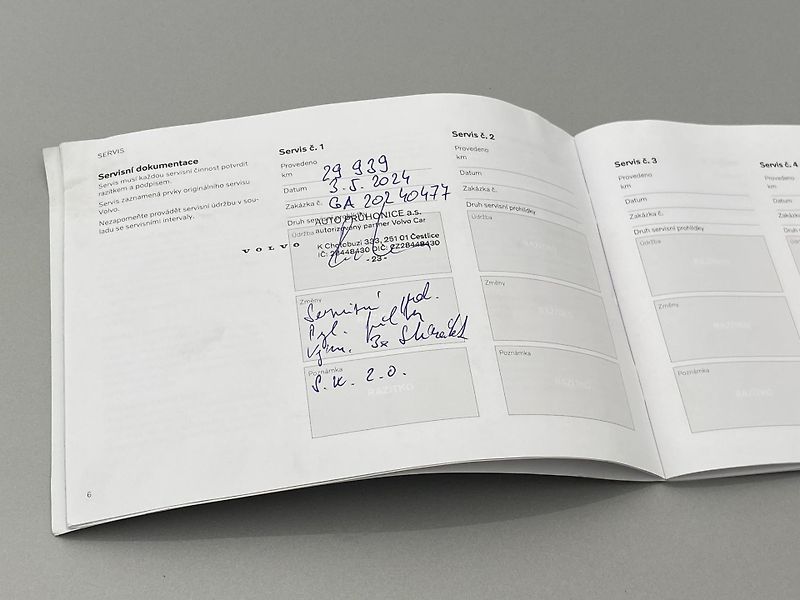 SERVIS
Servisní dokumentace
Servis musí každou servisní činnost potvrdit
razítkem a podpisem.
Servis zaznamená prvky originálního servisu
Volvo.
Nezapomeňte provádět servisní údržbu v sou-
ladu se servisními intervaly.
6
Servis č. 1
Provedeno
km 29 939
Datum 3.5.2024
Zakázka č. GA 20240477
Druh servisní prohlídky
Údržba
AUTO PRŮHONICE a.s.
autorizovaný partner Volvo Car
VOLVO
K Chotobuzi 333, 251 01 Čestlice
IČ: 28448430 DIČ: CZ28448430
-23-
Změny
Servisní
Pyl.
Vým. 3x
Poznámka
S.K. 2.0.
RAZÍTKO
Servis č. 2
Provedeno
km
Datum
Zakázka č.
Druh servisní prohlídky
Údržba
RAZÍTKO
Změny
RAZÍTKO
Poznámka
RAZÍTKO
Servis č. 3
Provedeno
km
Datum
Zakázka č.
Druh servisní prohlídky
Údržba
RAZÍTKO
Změny
RAZÍTKO
Poznámka
RAZÍTKO
Servis č. 4
Provedeno
km
Datum
Zakázka č.
Druh
Údržba
Změny
Poznámka